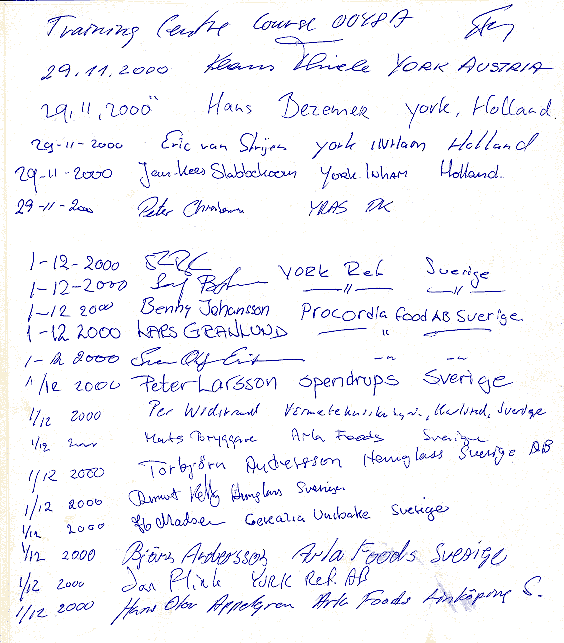 Training Centre Course 0048A
29.11.2000 Klaus Thiele YORK AUSTRIA
29,11,2000 Hans Bezemer york, Holland.
29-11-2000 Eric van Strijen york INHam Holland
29-11-2000 Jan-Kees York INHAM Holland.
29-11-2000 Peter YRAS DK
1-12-2000 YORK Ref Sverige
1-12-2000 —〃— —〃—
1-12 2000 Benny Johansson Procordia Food AB Sverige.
1-12 2000 LARS GRANLUND —〃—
1-12 2000 Sven Olof -〃- -〃-
1/12 2000 Peter Larsson Spendrups Sverige
1/12 2000 Per Widstrand Karlstad, Sverige
1/12 2000 Mats Bryggare Arla Foods Sverige
1/12 2000 Torbjörn Andersson Hemglass Sverige AB
1/12 2000 Kelly Hemglass Sverige
1/12 2000 Bo Madsen Cerealia Unibake Sverige
1/12 2000 Björn Andersson Arla Foods Sverige
1/12 2000 Jan YORK Ref. AB
1/12 2000 Hans Olov Appelgren Arla Foods Linköping S.